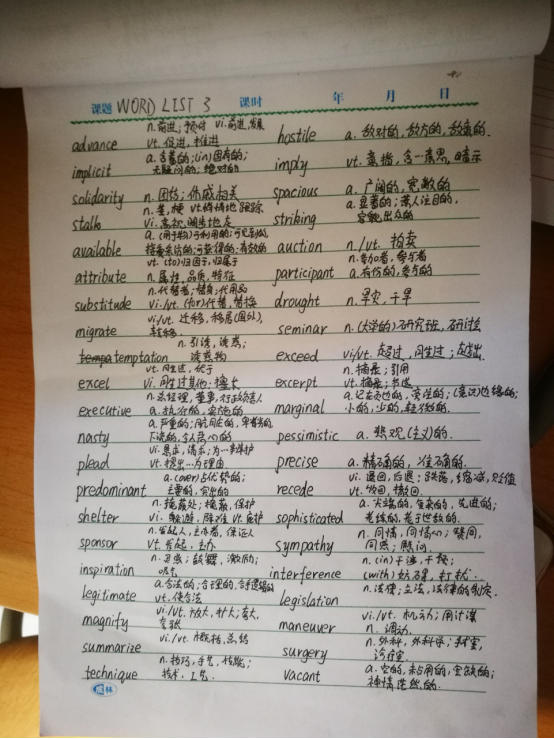 课题 WORD LIST 3 课时 年 月 日
n. 前进；预付 vi. 前进,发展
advance vt. 促进,推进 hostile a. 敌对的,敌方的,敌意的.
a. 含蓄的；(in)固有的；
implicit 无疑问的；绝对的 imply vt. 意指,含一意思,暗示
solidarity n. 团结； spacious a. 广阔的,宽敞的
n. 茎,梗 vt. 悄悄地跟踪 a. 显著的；惹人注目的,
stalk vi. 高视阔步地走 striking 容貌出众的
a. (用于物)可利用的；可见到的,
available 接受采访的；可获得的；有效的 auction n./vt. 拍卖
vt. (to)归因于,归属于 n. 参加者,参与者
attribute n. 属性,品质,特征 participant a. 有份的,参与的
n. 代替者；替身；代用品
substitude vi./vt. (for)代替,替换 drought n. 旱灾,干旱
vi./vt. 迁移,移居(国外),
migrate 转移. seminar n. (大学的)研究班,研讨会
n. 引诱,诱惑；
temptation 诱惑物 exceed vi/vt. 超过,胜过；越出
vt. 胜过,优于 n. 摘录；引用
excel vi. 胜过其他；擅长 excerpt vt. 摘录；
n. 总经理,董事,行政负责人
executive a. 执行的,实施的 marginal 小的,少的,
nasty 下流的,令人恶心的 pessimistic a. 悲观(主义)的.
plead vt. 提出…为理由 precise a. 精确的,准确的.
a. (over)占优势的；
predominant 主要的,突出的 recede vt. 收回,撤回.
n. 掩蔽处；掩蔽,保护
shelter vi. 躲避 sophisticated 老练的,老于世故的.
n. 发起人,主办者,保证人 n. 同情,同情心；
sponsor vt. 发起,主办 sympathy
n. 灵感；鼓舞,激励； n. (in)干涉,干预；
inspiration 吸气 interference (with)妨碍,打扰.
a. 合法的；合理的,合乎逻辑的 n. 法律；立法,法律的制定.
legitimate vt. 使合法 legislation
vi./vt. 放大,扩大；夸大,
magnify 夸张 maneuver n. 调动.
vi./vt. 概括,总结 n. 外科,外科学；手术室,
summarize surgery 诊疗室.
n. 技巧,手艺,技能； a. 空的,未占用的,空缺的；
technique 技术,工艺. vacant 神情茫然的.